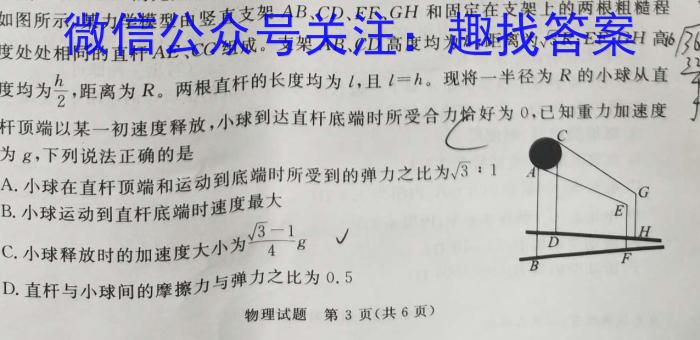 如图所示,力学模型由竖直支架 AB、CD、EF、GH 和固定在支架上的两根粗糙程
微信公众号关注:趣找答案
度处处相同的直杆 AE、CG 组成。支架 AB、CD 高度均为 距离为 EF、GH 高
度均为h/2,距离为 R。两根直杆的长度均为 l,且 l=h。现将一半径为 R 的小球从直
杆顶端以某一初速度释放,小球到达直杆底端时所受合力恰好为 0,已知重力加速度
为 g,下列说法正确的是
A. 小球在直杆顶端和运动到底端时所受到的弹力之比为√3∶1
B. 小球运动到直杆底端时速度最大
C. 小球释放时的加速度大小为(√3-1)/4 g √
D. 直杆与小球间的摩擦力与弹力之比为 0.5
C
A
G
E
H
D
B
F
物理试题 第 3 页(共 6 页)